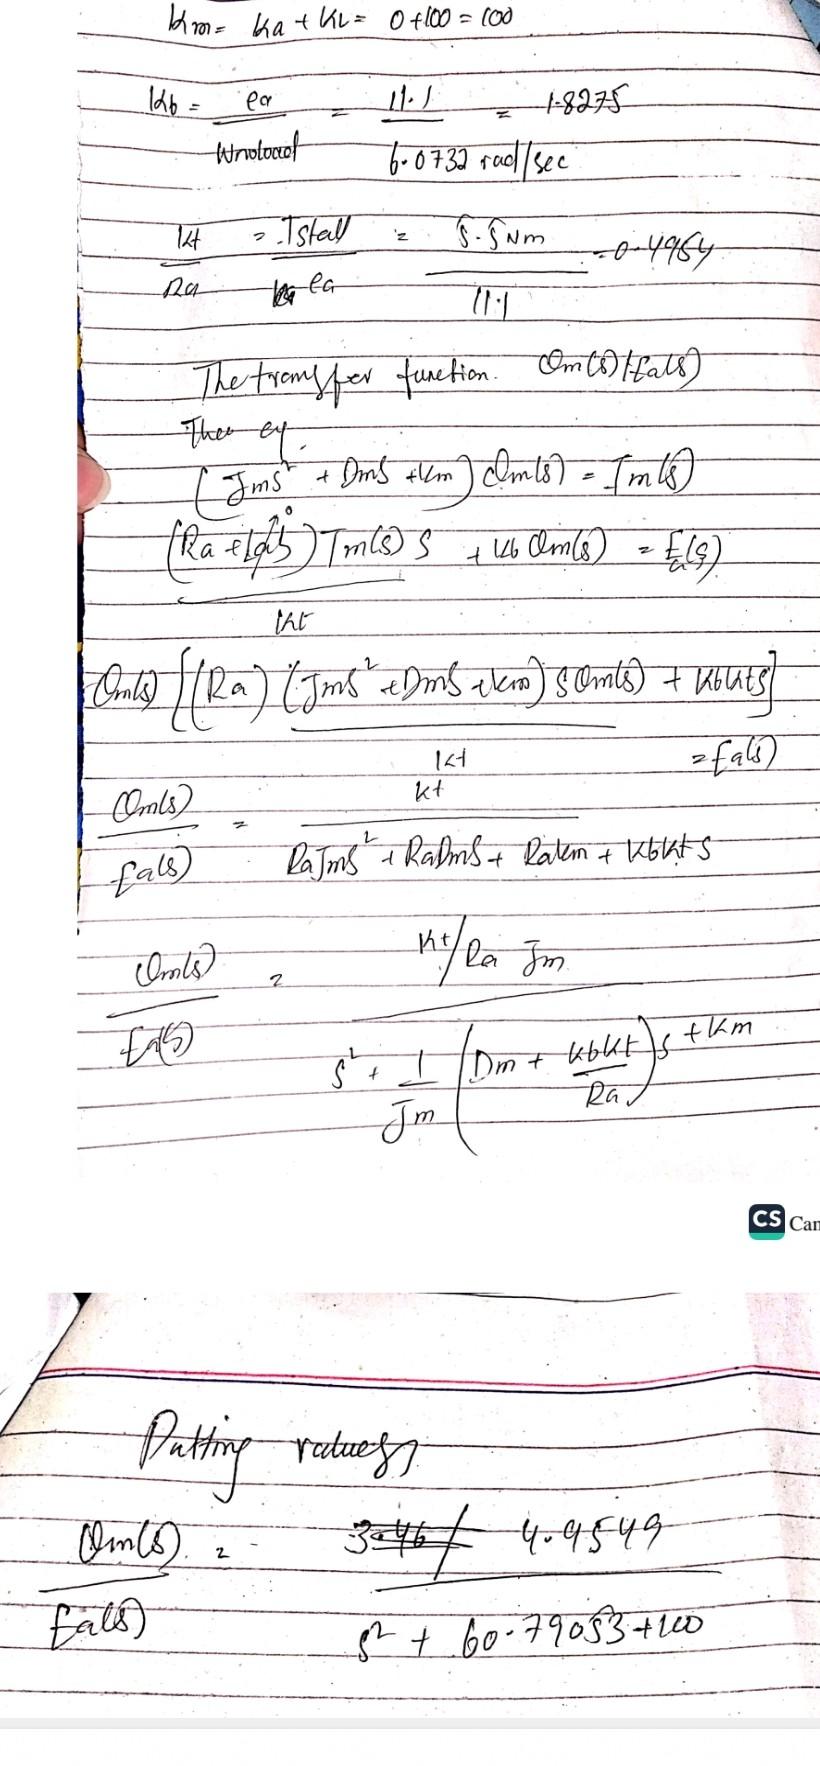 Km = Ka + KL = 0 + 100 = 100
Kb = ea / Wnoload = 11.1 / 6.0732 rad/sec = 1.8275
Kt / Ra = Tstall / ea = 5.5 Nm / 11.1 = 0.4954
The transfer function. Θm(s)/Ea(s)
Then eq.
(Jms² + Dms + km) Θm(s) = Tm(s)
(Ra + Las) Tm(s) s / Kt + Kb Θm(s) = Ea(s)
Θm(s) [(Ra) (Jms² + Dms + km) s Θm(s) / Kt + KbKts] = Ea(s)
Θm(s) / Ea(s) = Kt / RaJms² + RaDms + Rakm + KbKt s
Θm(s) / Ea(s) = Kt/Ra Jm / s² + 1/Jm (Dm + KbKt/Ra) s + Km
CS Can
Putting values
Θm(s) / Ea(s) = 4.9549 / s² + 60.79053 + 100